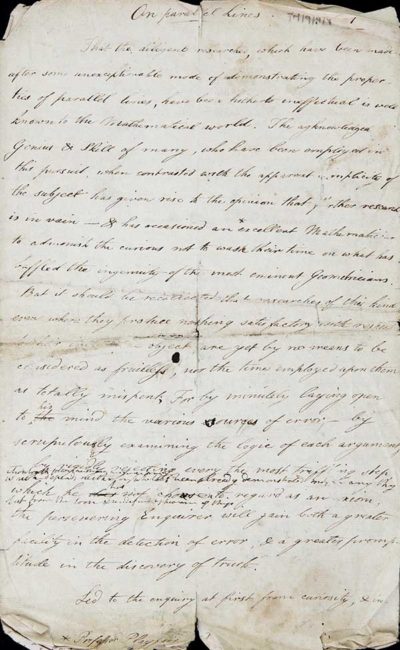 On parallel Lines.
1
That the diligent researches, which have been made
after some unexceptionable mode of demonstrating the proper-
ties of parallel lines, have been hitherto ineffectual is well
known to the Mathematical world. The acknowledged
Genius & Skill of many, who have been employed in
this pursuit, when contrasted with the apparent simplicity of
the subject has given rise to the opinion that further research
is in vain — & has occasioned an x excellent Mathematic
to admonish the curious not to waste their time on what has
baffled the ingenuity of the most eminent Geometricians.
But it should be recollected that researches of this kind
even where they produce nothing satisfactory with
object are yet by no means to be
considered as fruitless, nor the time employed upon them
as totally mispent. For by minutely laying open
to his mind the various sources of error — by
scrupulously examining the logic of each argument
by rejecting every the most trifling step
which he regard as an axiom
the persevering Enquirer will gain both a greater
in the detection of error, & a greater promp-
titude in the discovery of truth.
Led to the enquiry at first from curiosity, &
x Professor Playfair